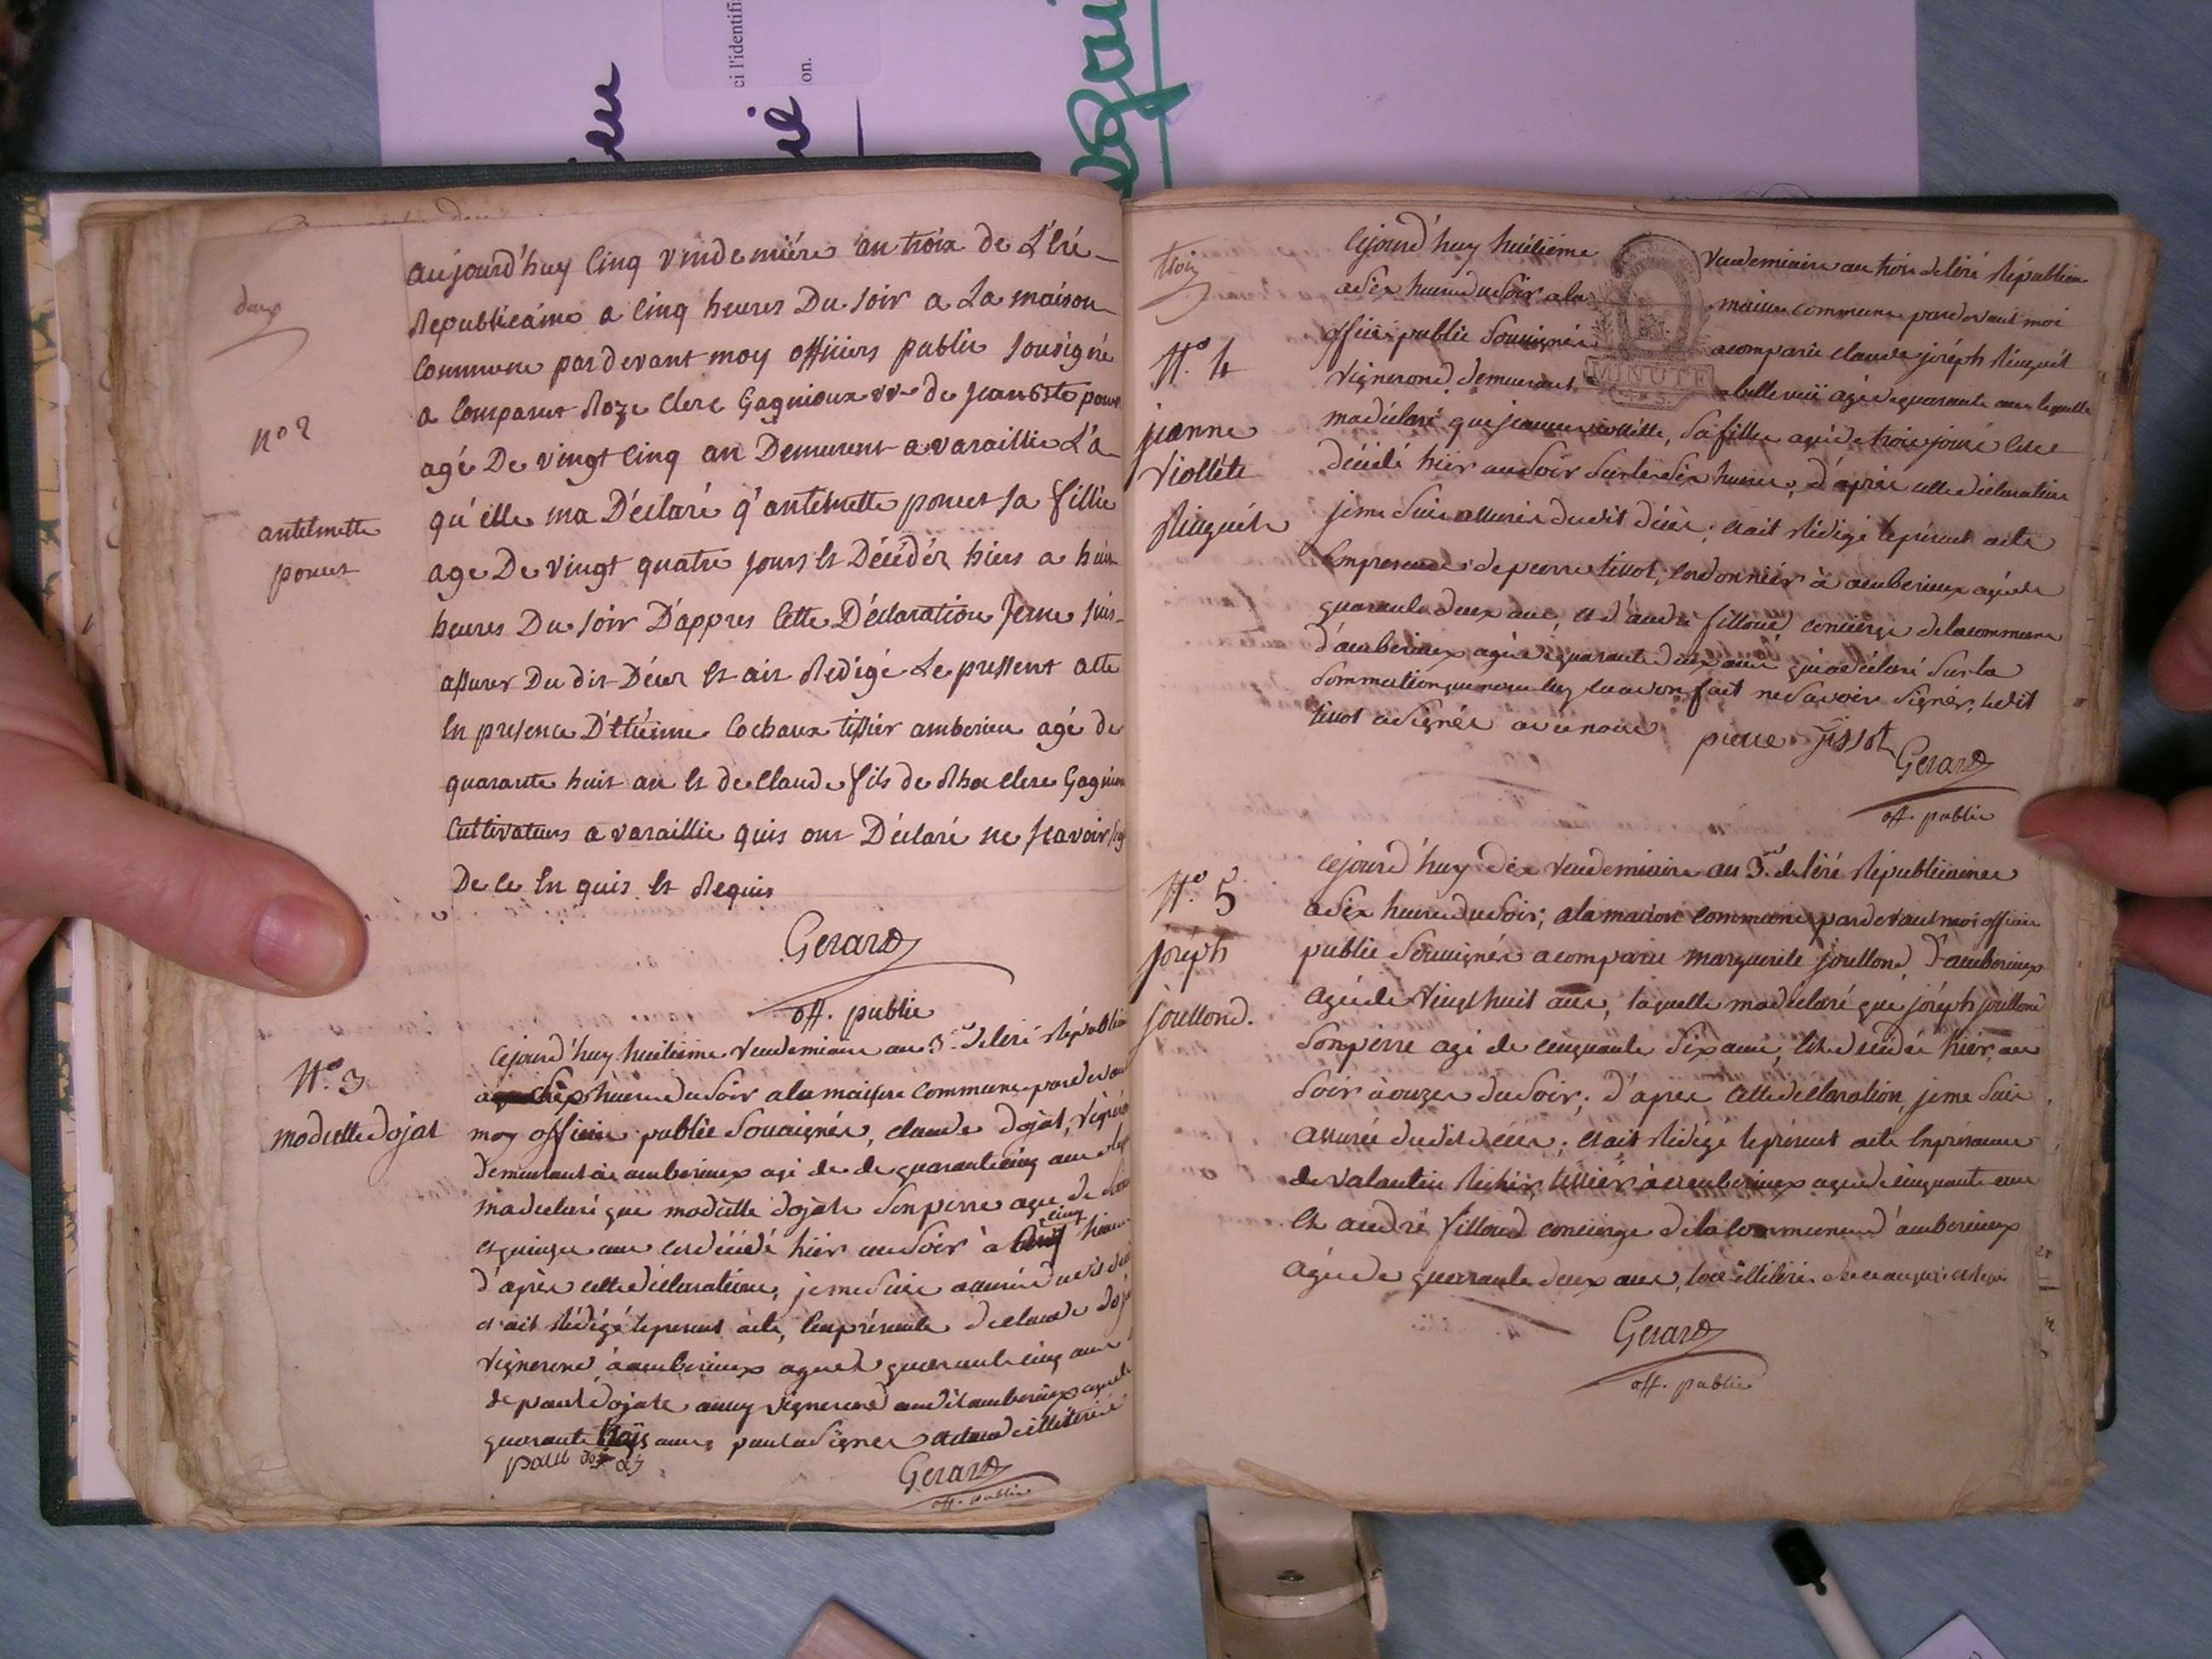 deux
aujourd'huy Cinq vindemière an troix de L'éré
Republicaine a Cinq heures Du soir a La maison
Commune par devant moy officiers public sousigné
a Comparut Roze Clerc Gagnioux vve de Jean Bte ponc
agé De vingt Cinq an Demurent a varaillie L'a
qu'elle ma Déclaré q' antelmette poncet sa fillie
age De vingt quatre jours Et Décédér hiers a huit
heures Du soir D'appres Cette Déclaration Jeme suis
assurer Du dit Décer Et ait Redigé Le pressent acte
En presence D'Etienne Cochaux tissiér amberieu agé de
quarante huit an Et de Claude fils de Clerc Gagniou
Cultivateurs a varaillie quis ont Déclaré ne scavoir
De ce En quis Et Requis
n° 2
antelmette
poncet
Gerard
off. public
N.° 3
modeste dojat
Cejourd'huy huitieme Vendemiaire an 3.e de léré Républi
heure du soir a la maison Commune pardevan
moy officier public Souсigner, claude dojat, vigner
demeurant à amberieux agé de de quarante cinq ans
ma declaré que dojate son perre agé de
et quinze ans est décédé hier au soir à cinq heur
d'après cette déclaration, je me suis assuré dudit
et ait Rédigé le present acte, en présence de claude doj
vignerond à amberieux agé de quarante cinq ans
de paul dojate aussy vignerond audit amberieux agé de
quarante trois ans, paul a signer et claude illiteré
paul
Gerard
off. public
trois
N.° 4
jeanne
Viollete
Cejourd'huy huitieme Vendemiaire an trois de léré Républicn
a six heure du soir a la maison commune pardevant moi
officier public Sousigner a comparu claude joséph
vignerond demeurant a bellevue agé de quarante ans lequelle
ma déclaré que jeanne viollette, sa fille agé de trois jours est
décédé hier au soir sur les six heures, d'après cette déclaration
je me suis assurer dudit décès; et ait Rédigé le présent acte
En presence de pierre tissot, cordonniér à amberieux agé de
quarante deux ans, et d'andré filloud concierge de la commune
d'amberieux agé de quarante deux ans qui a déclaré sur la
Sommation que nous luy en avon fait ne savoir signér, ledit
tissot a signér avec nous
pierre tissot
Gerard
off. public
N.° 5
joséph
joullond.
Cejourd'huy dix Vendemiaire an 3.e de léré Républicaine
a six heure du soir; a la maison commune pardevant moi officier
public Sousigner a comparu marguerite joullond d'amberieux
agé de Vingt huit ans, laquelle ma declaré que joséph joullond
son perre agé de cinquante six ans, Est decédé hier, au
soir à onze du soir; d'après cette déclaration, je me suis
assurée dudit décès; et ait Rédigé le présent acte En présence
de Valantin tissiér à amberieux agé de cinquante ans
Et andré filloud concierge de la commune d'amberieux
agé de quarante deux ans, tous illiteré de ce enquis et requis
Gerard
off. public
MINUTE
ci l'identifi
on.